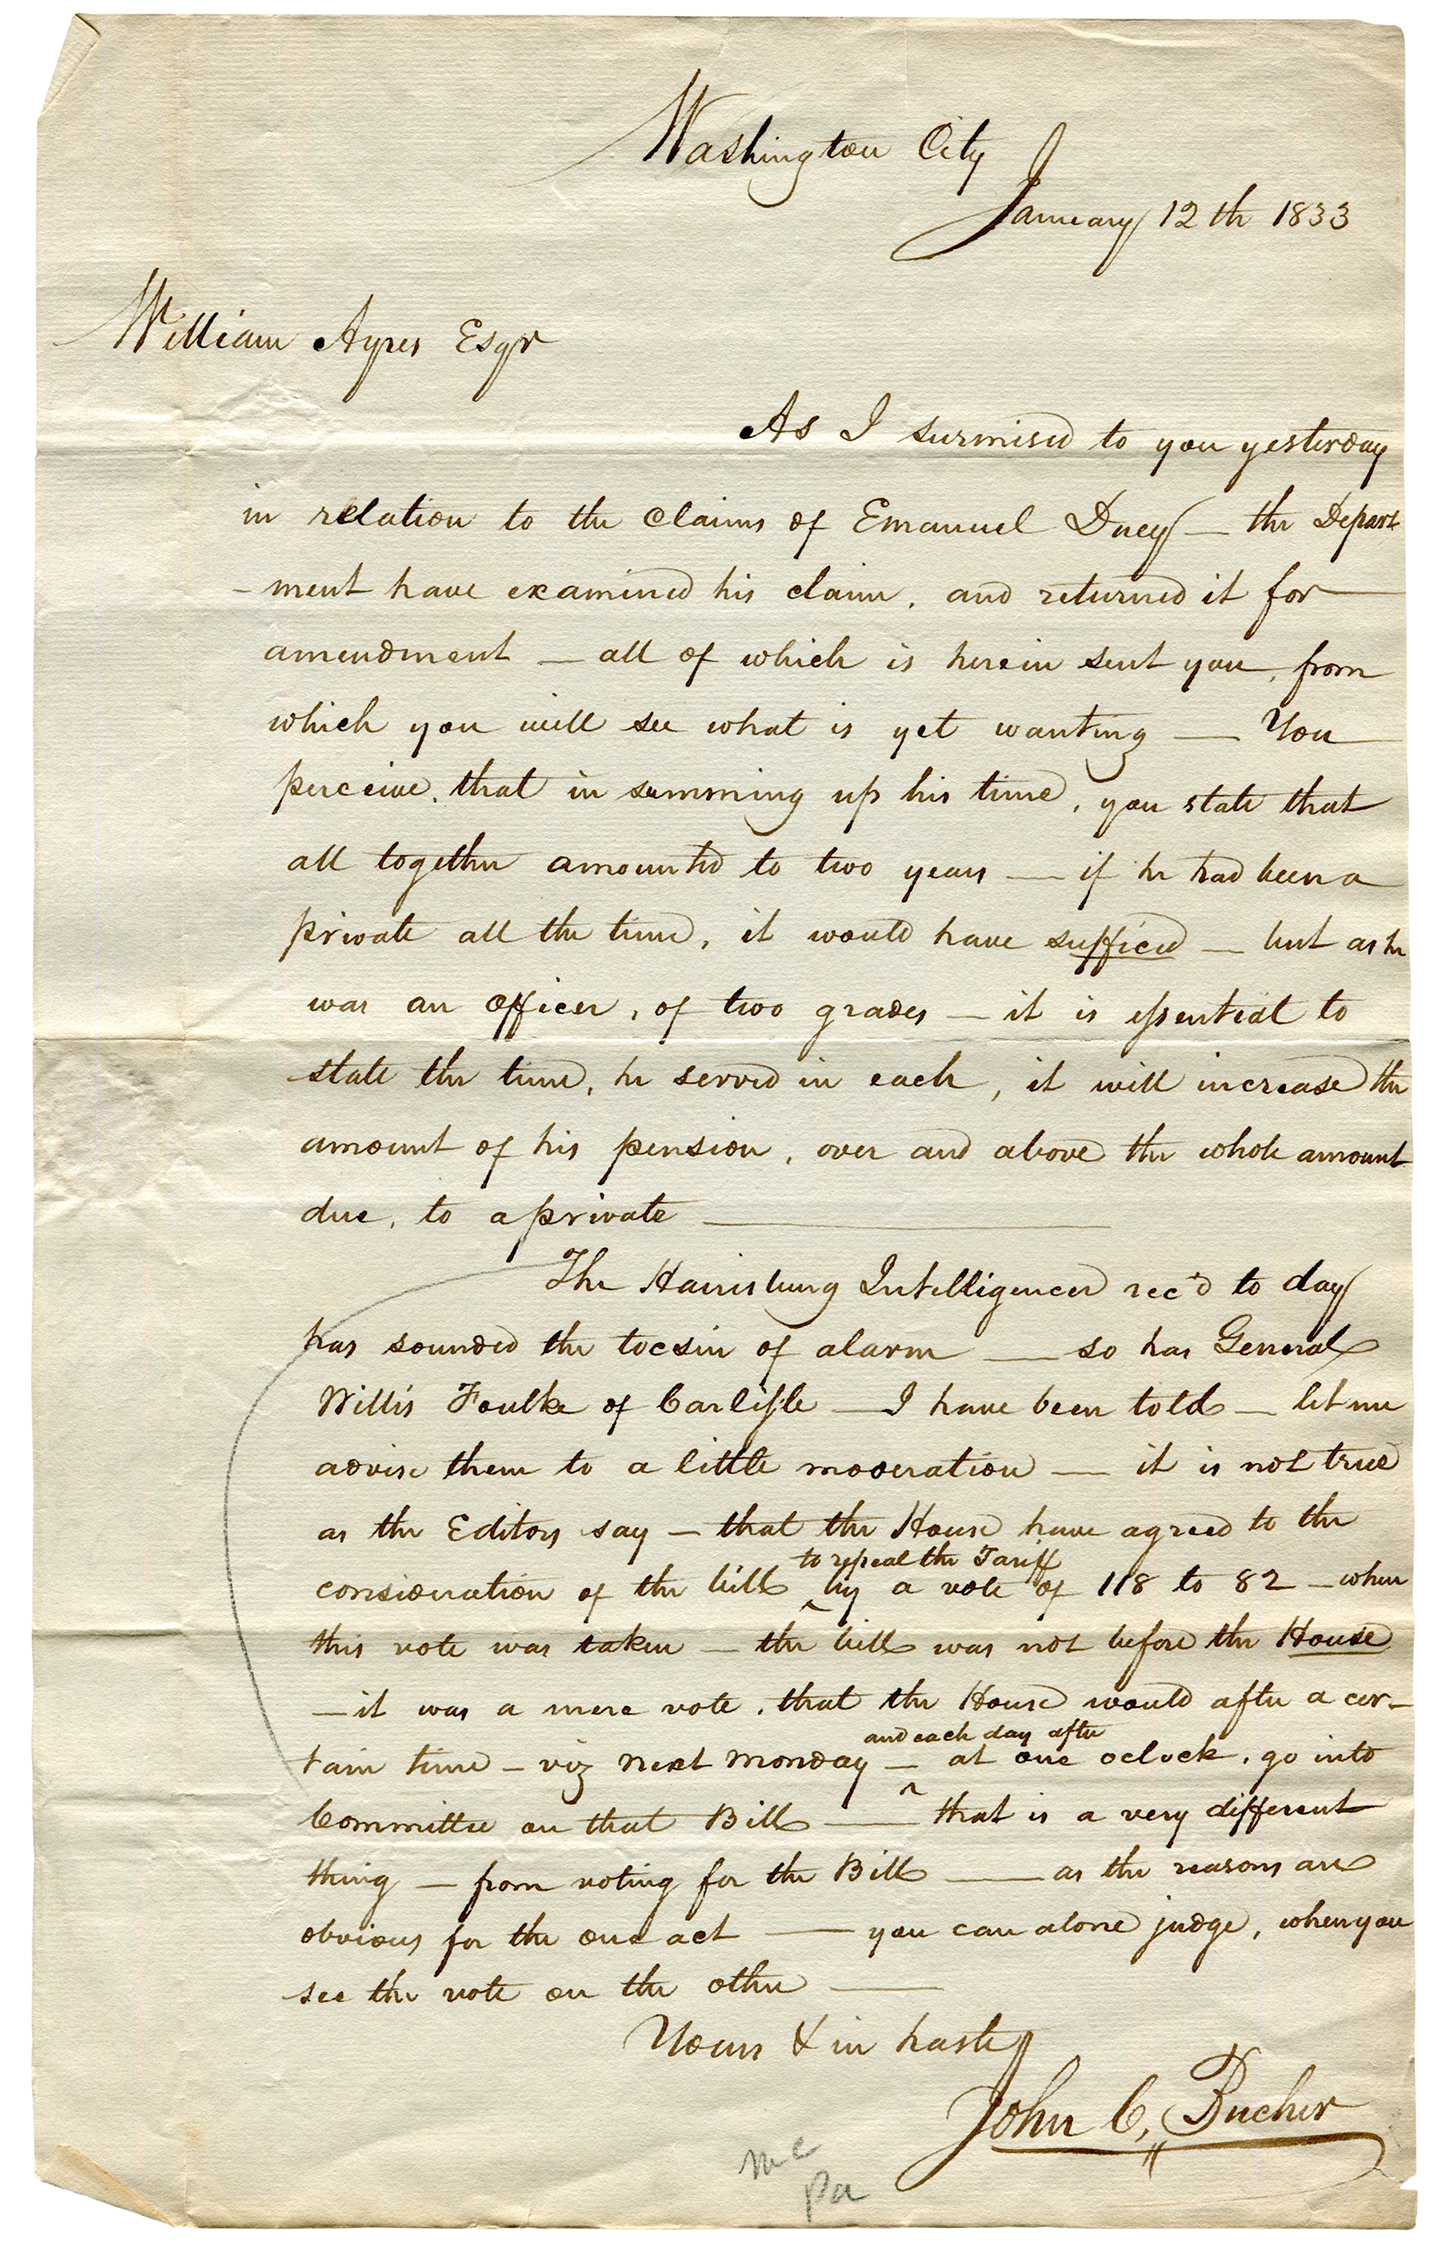 Washington City
January 12th 1833
William Ayres Esqr
As I surmised to you yesterday
in relation to the claims of Emanuel Duey — the Depart
-ment have examined his claim, and returned it for
amendment — all of which is herein sent you, from
which you will see what is yet wanting — You
perceive, that in summing up his time, you state that
all together amounted to two years — if he had been a
private all the time, it would have sufficed — but as he
was an officer, of two grades — it is essential to
state the time, he served in each, it will increase the
amount of his pension, over and above the whole amount
due, to a private —
The Harrisburg Intelligencer rec'd to day
has sounded the tocsin of alarm — so has General
Willis Foulke of Carlisle — I have been told — let me
advise them to a little moderation — it is not true
as the Editors say — that the House have agreed to the
to repeal the Tariff
consideration of the bill ‸ by a vote of 118 to 82 — when
this vote was taken — the bill was not before the House
— it was a mere vote, that the House would after a cer-
and each day after
tain time — viz next monday — ‸ at one oclock, go into
Committee on that Bill — that is a very different
thing — from voting for the Bill — as the reasons are
obvious for the one act — you can alone judge, when you
see the vote on the other —
Yours & in haste
John C. Bucher
mc
Pa